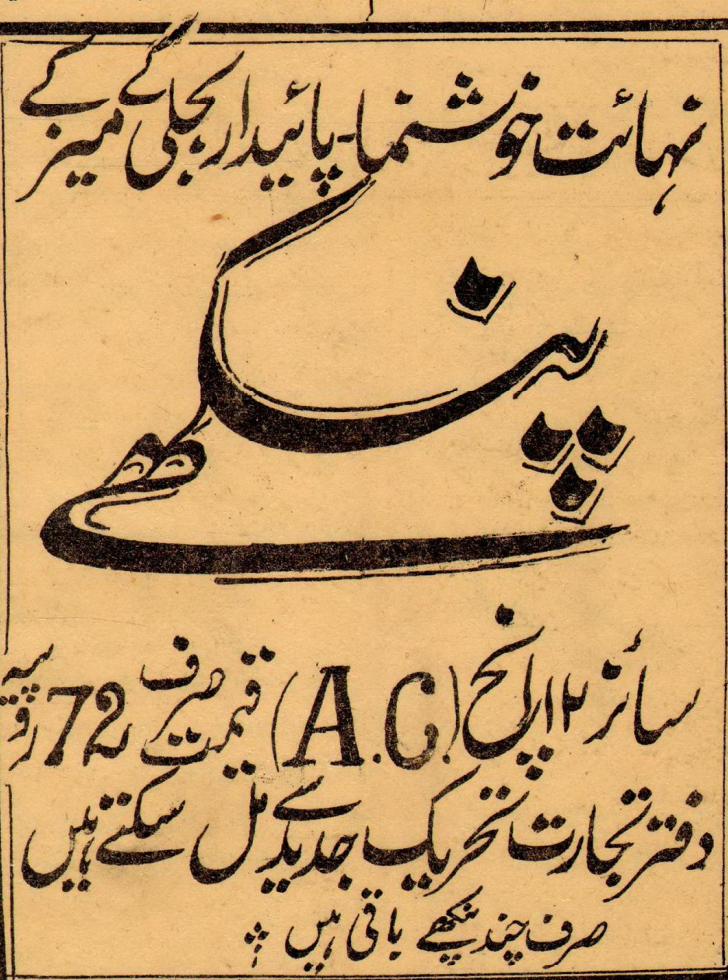 نہائت خوشنما۔ پائیدار بجلی کے میز کے
پنکھے
سائز ۱۲ انچ (A.C.) قیمت صرف 72 روپیہ
دفتر تجارت تحریک جدید سے مل سکتے ہیں
صرف چند پنکھے باقی ہیں